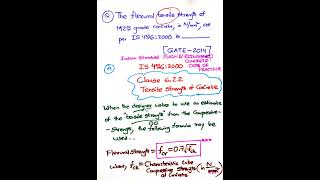 Q The flexural tensile strength of
M25 grade concrete, in N/mm², as
per IS 456:2000 is
GATE-2014
Indian Standard PLAIN & REINFORCED
CONCRETE
IS 456:2000 CODE OF
PRACTICE
Clause 6.2.2
Tensile Strength of Concrete
When the designer wishes to use an estimate
of the "tensile strength" from the Compressive-
-Strength, the following formula may be
used...
Flexural Strength = fcr = 0.7√fck
where, fck = Characteristic Cube
Compressive Strength (in N/mm²)
of Concrete